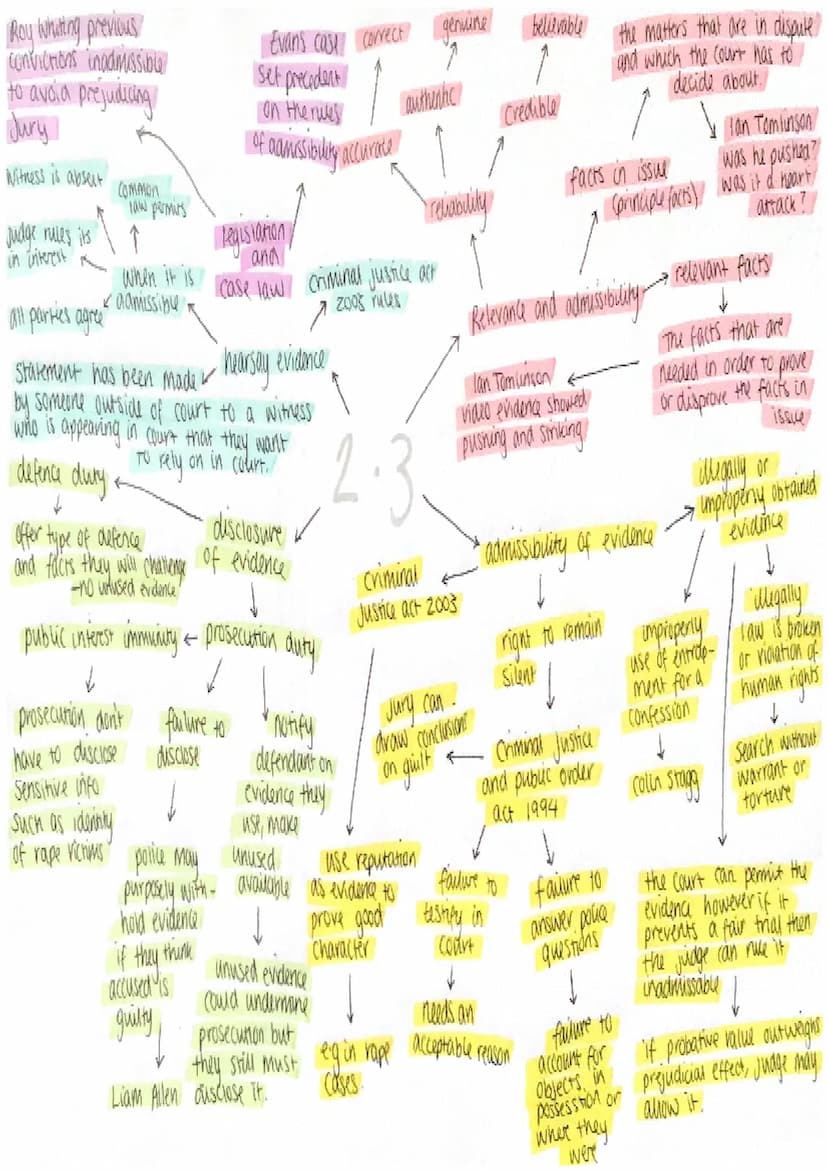 Roy Whiting previous
convictions inadmissible
to avoid prejudicing
jury
Evans case
set precedent
on the rules
of admissibility
legislation
and
case law
correct
genuine
believable
authentic
credible
accurate
reliability
the matters that are in dispute
and which the court has to
decide about.
Ian Tomlinson
was he pushed?
was it a heart
attack?
facts in issue
(principle facts)
Relevance and admissibility
relevant facts
The facts that are
needed in order to prove
or disprove the facts in
issue
Ian Tomlinson
video evidence showed
pushing and striking
witness is absent
common
law permits
Judge rules its
in interest
all parties agree
when it is
admissible
criminal justice act
2003 rules
hearsay evidence
Statement has been made
by someone outside of court to a witness
who is appearing in court that they want
to rely on in court.
2.3
defence duty
offer type of defence
and facts they will challenge
-no unused evidence
disclosure
of evidence
public interest immunity
prosecution duty
prosecution don't
have to disclose
sensitive info
such as identity
of rape victims
failure to
disclose
police may
purposely with-
hold evidence
if they think
accused is
guilty
Liam Allen
notify
defendant on
evidence they
use, make
unused
available
unused evidence
could undermine
prosecution but
they still must
disclose it.
admissibility of evidence
criminal
Justice act 2003
use reputation
as evidence to
prove good
character
e.g in rape
cases.
right to remain
silent
Criminal Justice
and public order
act 1994
Jury can
draw conclusions
on guilt
failure to
testify in
court
needs an
acceptable reason
failure to
answer police
questions
failure to
account for
objects in
possession or
where they
were
illegally or
improperly obtained
evidence
improperly
use of entrap-
ment for a
confession
colin stagg
illegally
law is broken
or violation of
human rights
search without
warrant or
torture
the court can permit the
evidence however if it
prevents a fair trial then
the judge can rule it
inadmissable
if probative value outweighs
prejudicial effect, judge may
allow it.